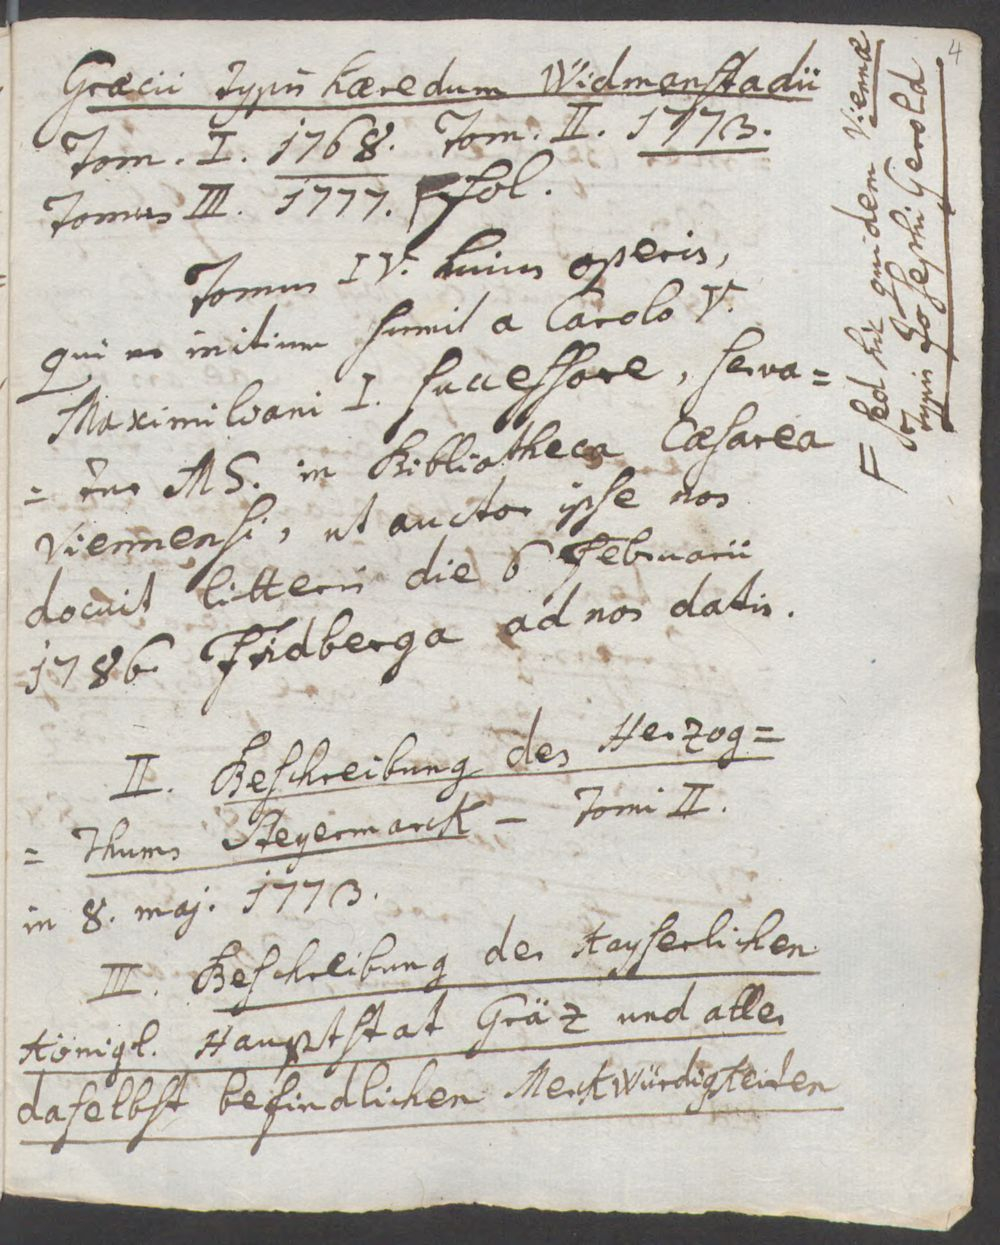 4
Græcii typis hæredum Widmanstadii
Tom. I. 1768. Tom. II. 1773.
Tomus III. 1777. F fol.
Tomus IV. huius operis,
qui initium sumit a Carolo V.
Maximiliani I. successore, serva=
= tur MS. in Bibliotheca Cæsarea
Viennensi, ut auctor ipse nos
docuit litteris die 6 Februarii
1786 Fridberga ad nos datis.
II. Beschreibung des Herzog=
= thums Steyermarck – Tomi II.
in 8. maj. 1773.
III. Beschreibung der Kayserlichen
Königl. Hauptstat Gräz und aller
daselbst befindlichen Merkwürdigkeiten
F sed hic quidem Viennæ
typis Josephi Gerold